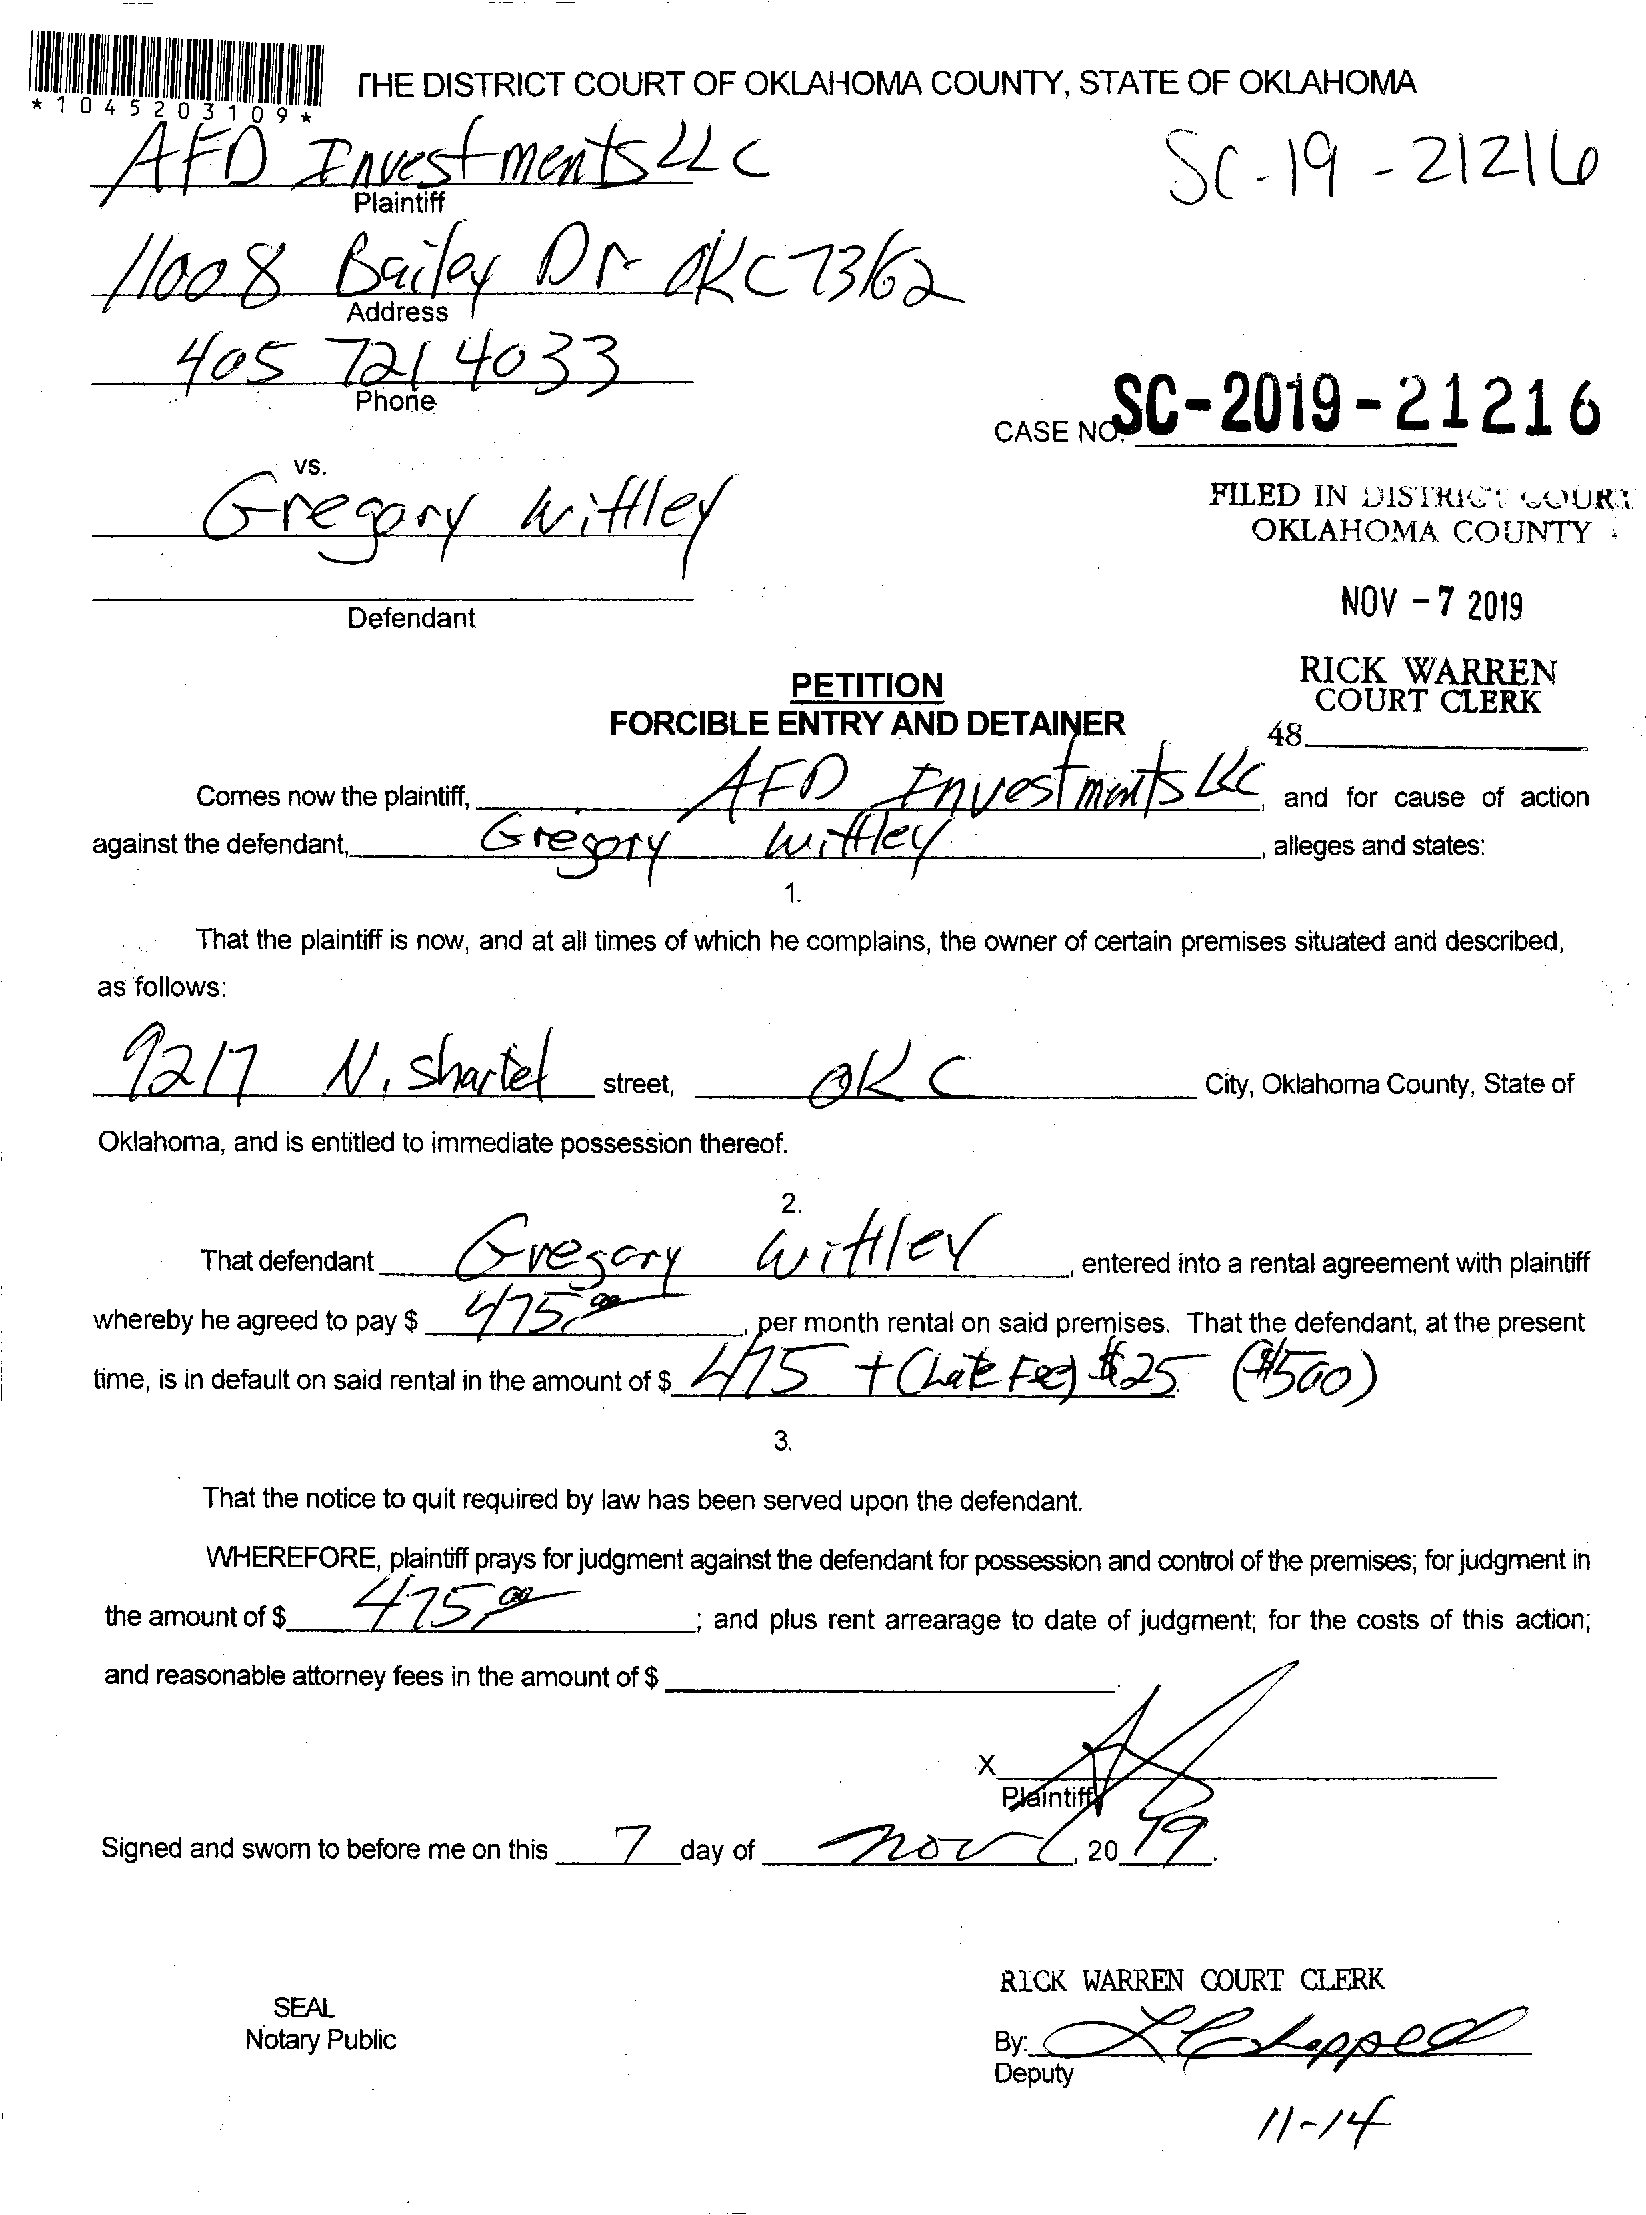 THE DISTRICT COURT OF OKLAHOMA COUNTY, STATE OF OKLAHOMA
*1045203109*
AFD Investments LLC
SC-19-21216
Plaintiff
11008 Bailey Dr OKC 73162
Address
405 721 4033
Phone
CASE NO. SC-2019-21216
vs.
Gregory Wittley
FILED IN DISTRICT COURT
OKLAHOMA COUNTY
Defendant
NOV -7 2019
RICK WARREN
COURT CLERK
48
PETITION
FORCIBLE ENTRY AND DETAINER
Comes now the plaintiff, AFD Investments LLC, and for cause of action
against the defendant, Gregory Wittley, alleges and states:
1.
That the plaintiff is now, and at all times of which he complains, the owner of certain premises situated and described,
as follows:
9217 N. Shartel street, OKC City, Oklahoma County, State of
Oklahoma, and is entitled to immediate possession thereof.
2.
That defendant Gregory Wittley, entered into a rental agreement with plaintiff
whereby he agreed to pay $ 475.00, per month rental on said premises. That the defendant, at the present
time, is in default on said rental in the amount of $ 475 + (Late Fee) $25 ($500)
3.
That the notice to quit required by law has been served upon the defendant.
WHEREFORE, plaintiff prays for judgment against the defendant for possession and control of the premises; for judgment in
the amount of $ 475.00; and plus rent arrearage to date of judgment; for the costs of this action;
and reasonable attorney fees in the amount of $
X
Plaintiff
Signed and sworn to before me on this 7 day of Nov, 20 19.
RICK WARREN COURT CLERK
SEAL
Notary Public
By:
Deputy
11-14